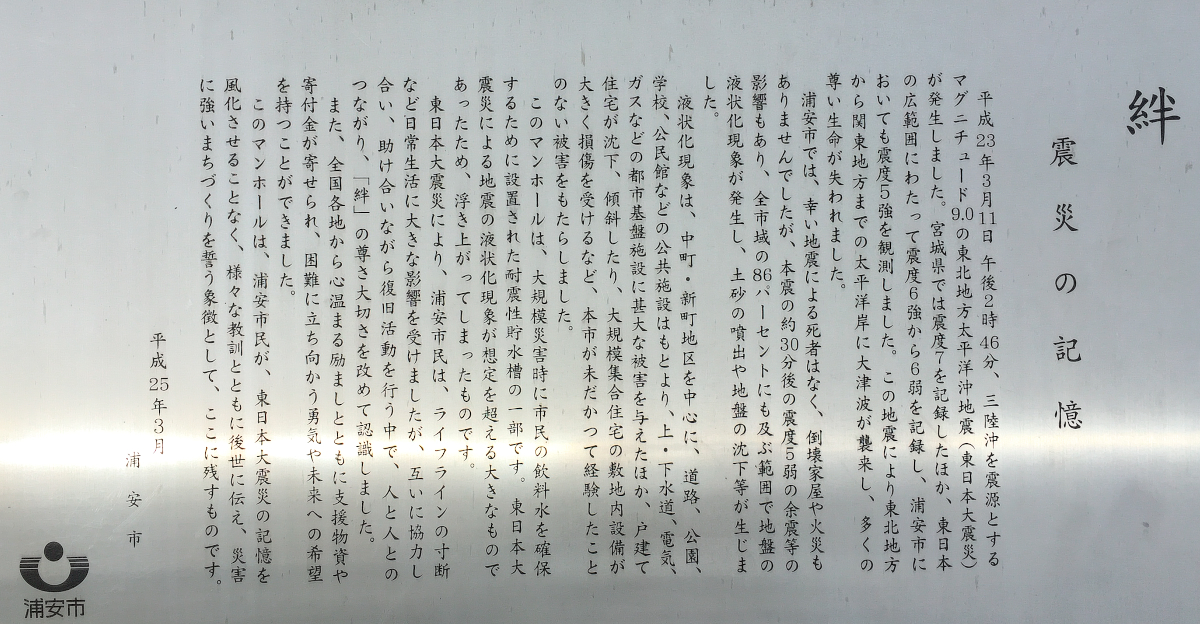 絆
震災の記憶
平成23年3月11日午後2時46分、三陸沖を震源とする
マグニチュード9.0の東北地方太平洋沖地震（東日本大震災）
が発生しました。宮城県では震度7を記録したほか、東日本
の広範囲にわたって震度6強から6弱を記録し、浦安市に
おいても震度5強を観測しました。この地震により東北地方
から関東地方までの太平洋岸に大津波が襲来し、多くの
尊い生命が失われました。
浦安市では、幸い地震による死者はなく、倒壊家屋や火災も
ありませんでしたが、本震の約30分後の震度5弱の余震等の
影響もあり、全市域の86パーセントにも及ぶ範囲で地盤の
液状化現象が発生し、土砂の噴出や地盤の沈下等が生じま
した。
液状化現象は、中町・新町地区を中心に、道路、公園、
学校、公民館などの公共施設はもとより、上・下水道、電気、
ガスなどの都市基盤施設に甚大な被害を与えたほか、戸建て
住宅が沈下、傾斜したり、大規模集合住宅の敷地内設備が
大きく損傷を受けるなど、本市が未だかつて経験したこと
のない被害をもたらしました。
このマンホールは、大規模災害時に市民の飲料水を確保
するために設置された耐震性貯水槽の一部です。東日本大
震災による地震の液状化現象が想定を超える大きなもので
あったため、浮き上がってしまったものです。
東日本大震災により、浦安市民は、ライフラインの寸断
など日常生活に大きな影響を受けましたが、互いに協力し
合い、助け合いながら復旧活動を行う中で、人と人との
つながり、「絆」の尊さ大切さを改めて認識しました。
また、全国各地から心温まる励ましとともに支援物資や
寄付金が寄せられ、困難に立ち向かう勇気や未来への希望
を持つことができました。
このマンホールは、浦安市民が、東日本大震災の記憶を
風化させることなく、様々な教訓とともに後世に伝え、災害
に強いまちづくりを誓う象徴として、ここに残すものです。
平成25年3月
浦安市
浦安市